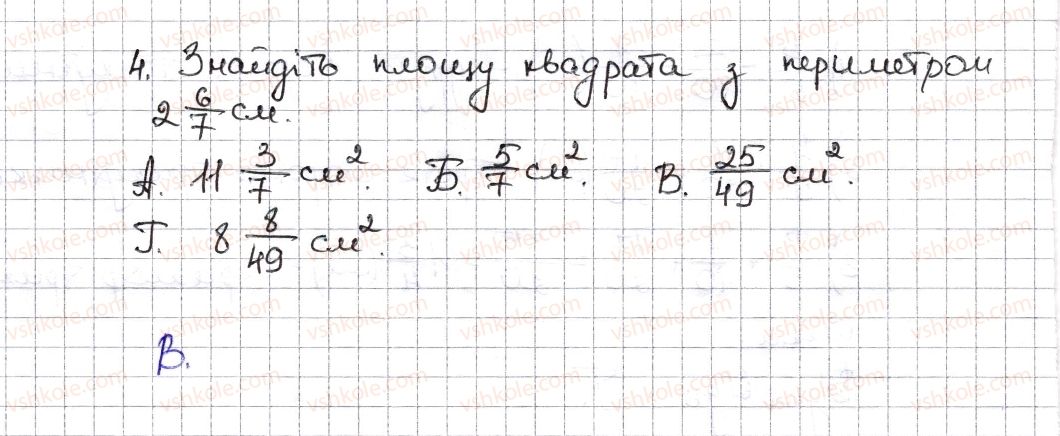 4. Знайдіть площу квадрата з периметром
2 6/7 см.
А. 11 3/7 см². Б. 5/7 см². В. 25/49 см².
Г. 8 8/49 см².
В.